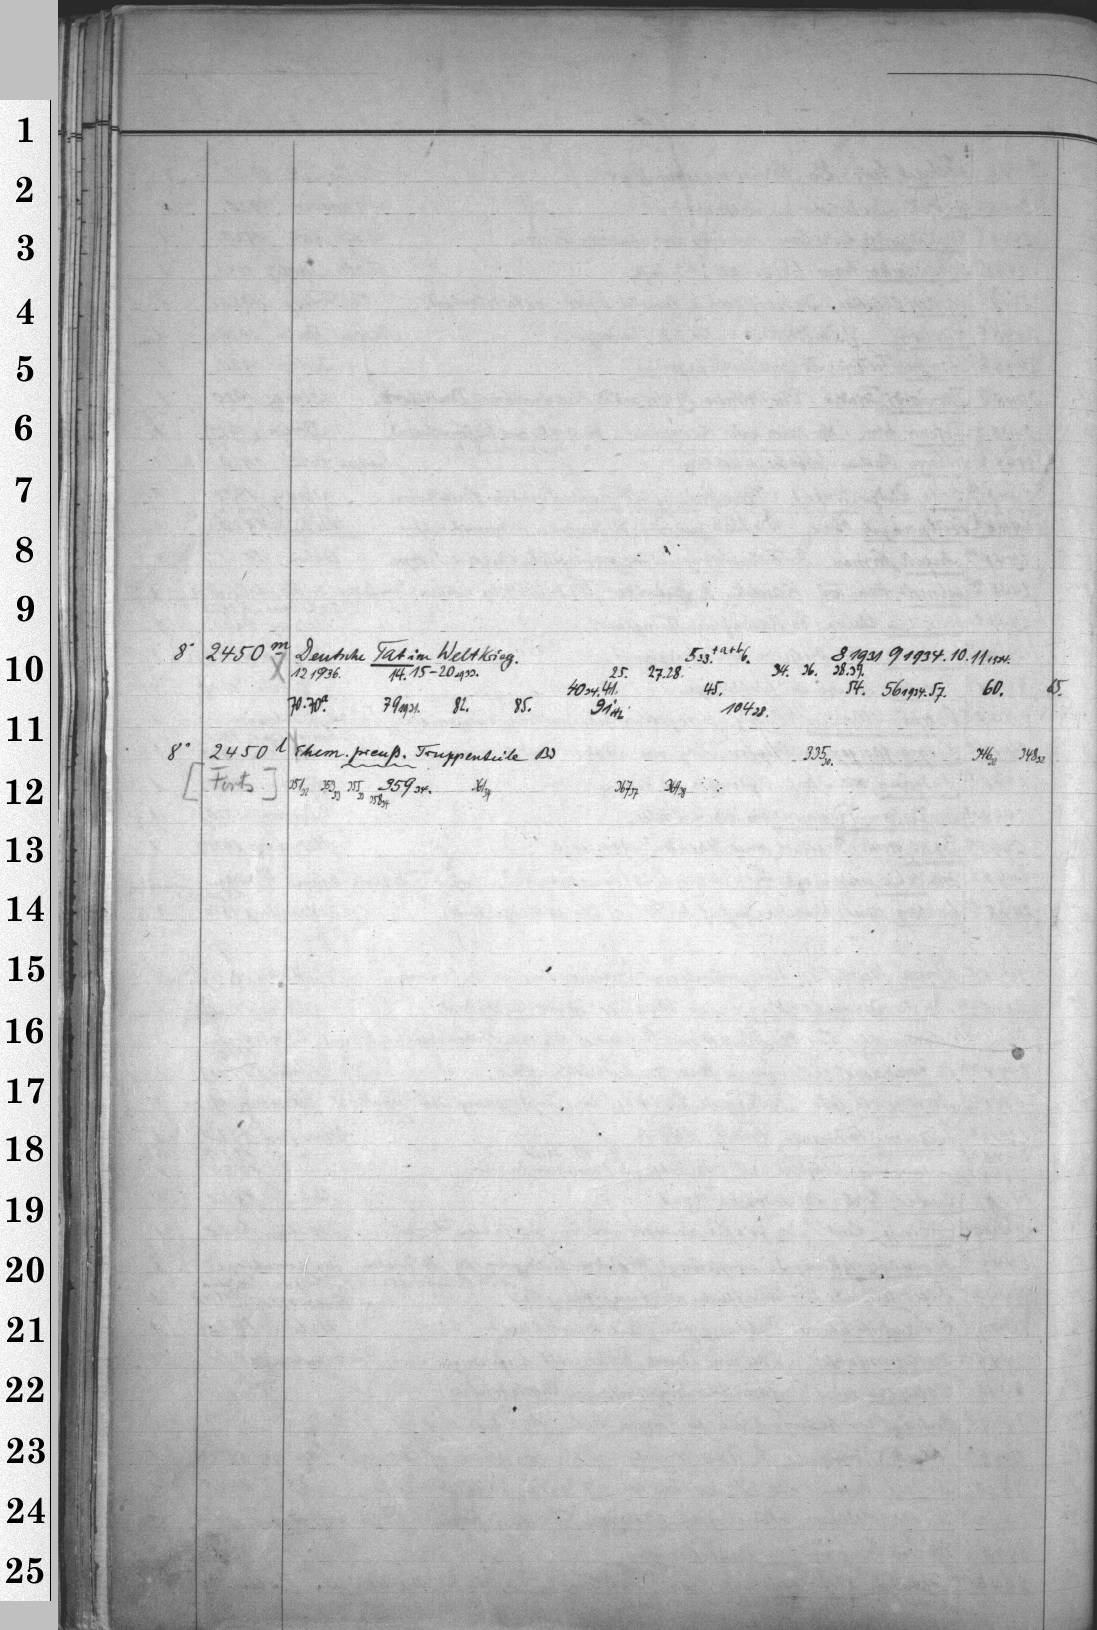 1
2
3
4
5
6
7
8
9
8° 2450 m Deutsche Tat im Weltkrieg. 533.+a+b6. 8 1931 9 1934. 10. 11 1934.
10
12 1936. 14. 15-20 1933. 25. 27.28. 34. 36. 38.39.
40 34. 41. 45. 54. 56 1934. 57. 60. 65.
70. 70a. 79 1931. 82. 85. 91 104 28.
11
8° 2450 l Ehem. preuß. Truppenteile Bd 335 30. 346 32 348 32
[Forts] 351 353 33 355 358 34 359 34. 361 34 367 37 369 38
12
13
14
15
16
17
18
19
20
21
22
23
24
25